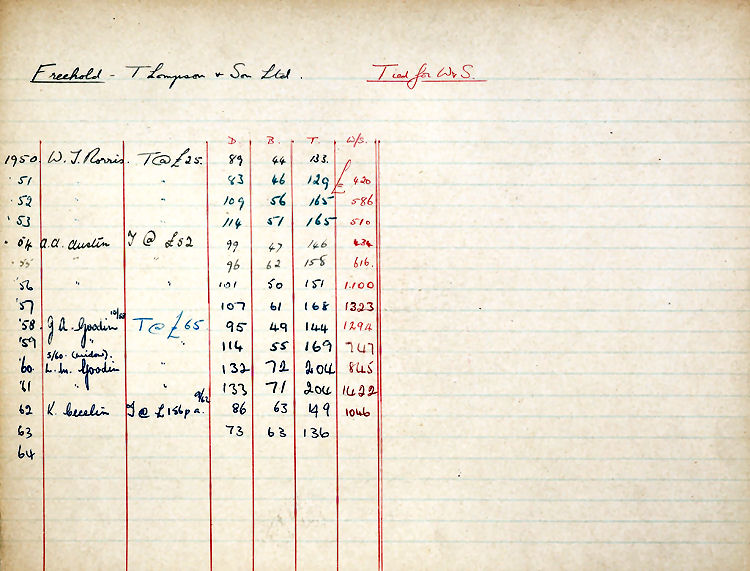 Freehold - Thompson & Son Ltd. Tied for W&S.
D. B. T. W/S.
1950. W. J. Norris. T @ £25. 89 44 133.
'51 " 83 46 129 £ 420
'52 " 109 56 165 586
'53 " 114 51 165 510
'54 A.A. Austin T @ £52 99 47 146 434
'55 " " 96 62 158 616.
'56 " " 101 50 151 1100
'57 107 61 168 1323
'58. G A. Goodin 10/58 T @ £65 95 49 144 1294
'59 " 114 55 169 747
5/60. (widow).
'60 L. M. Goodin " 132 72 204 845
'61 " " 133 71 204 1422
9/62
62 K. T @ £156 p a. 86 63 149 1046
63 73 63 136
64